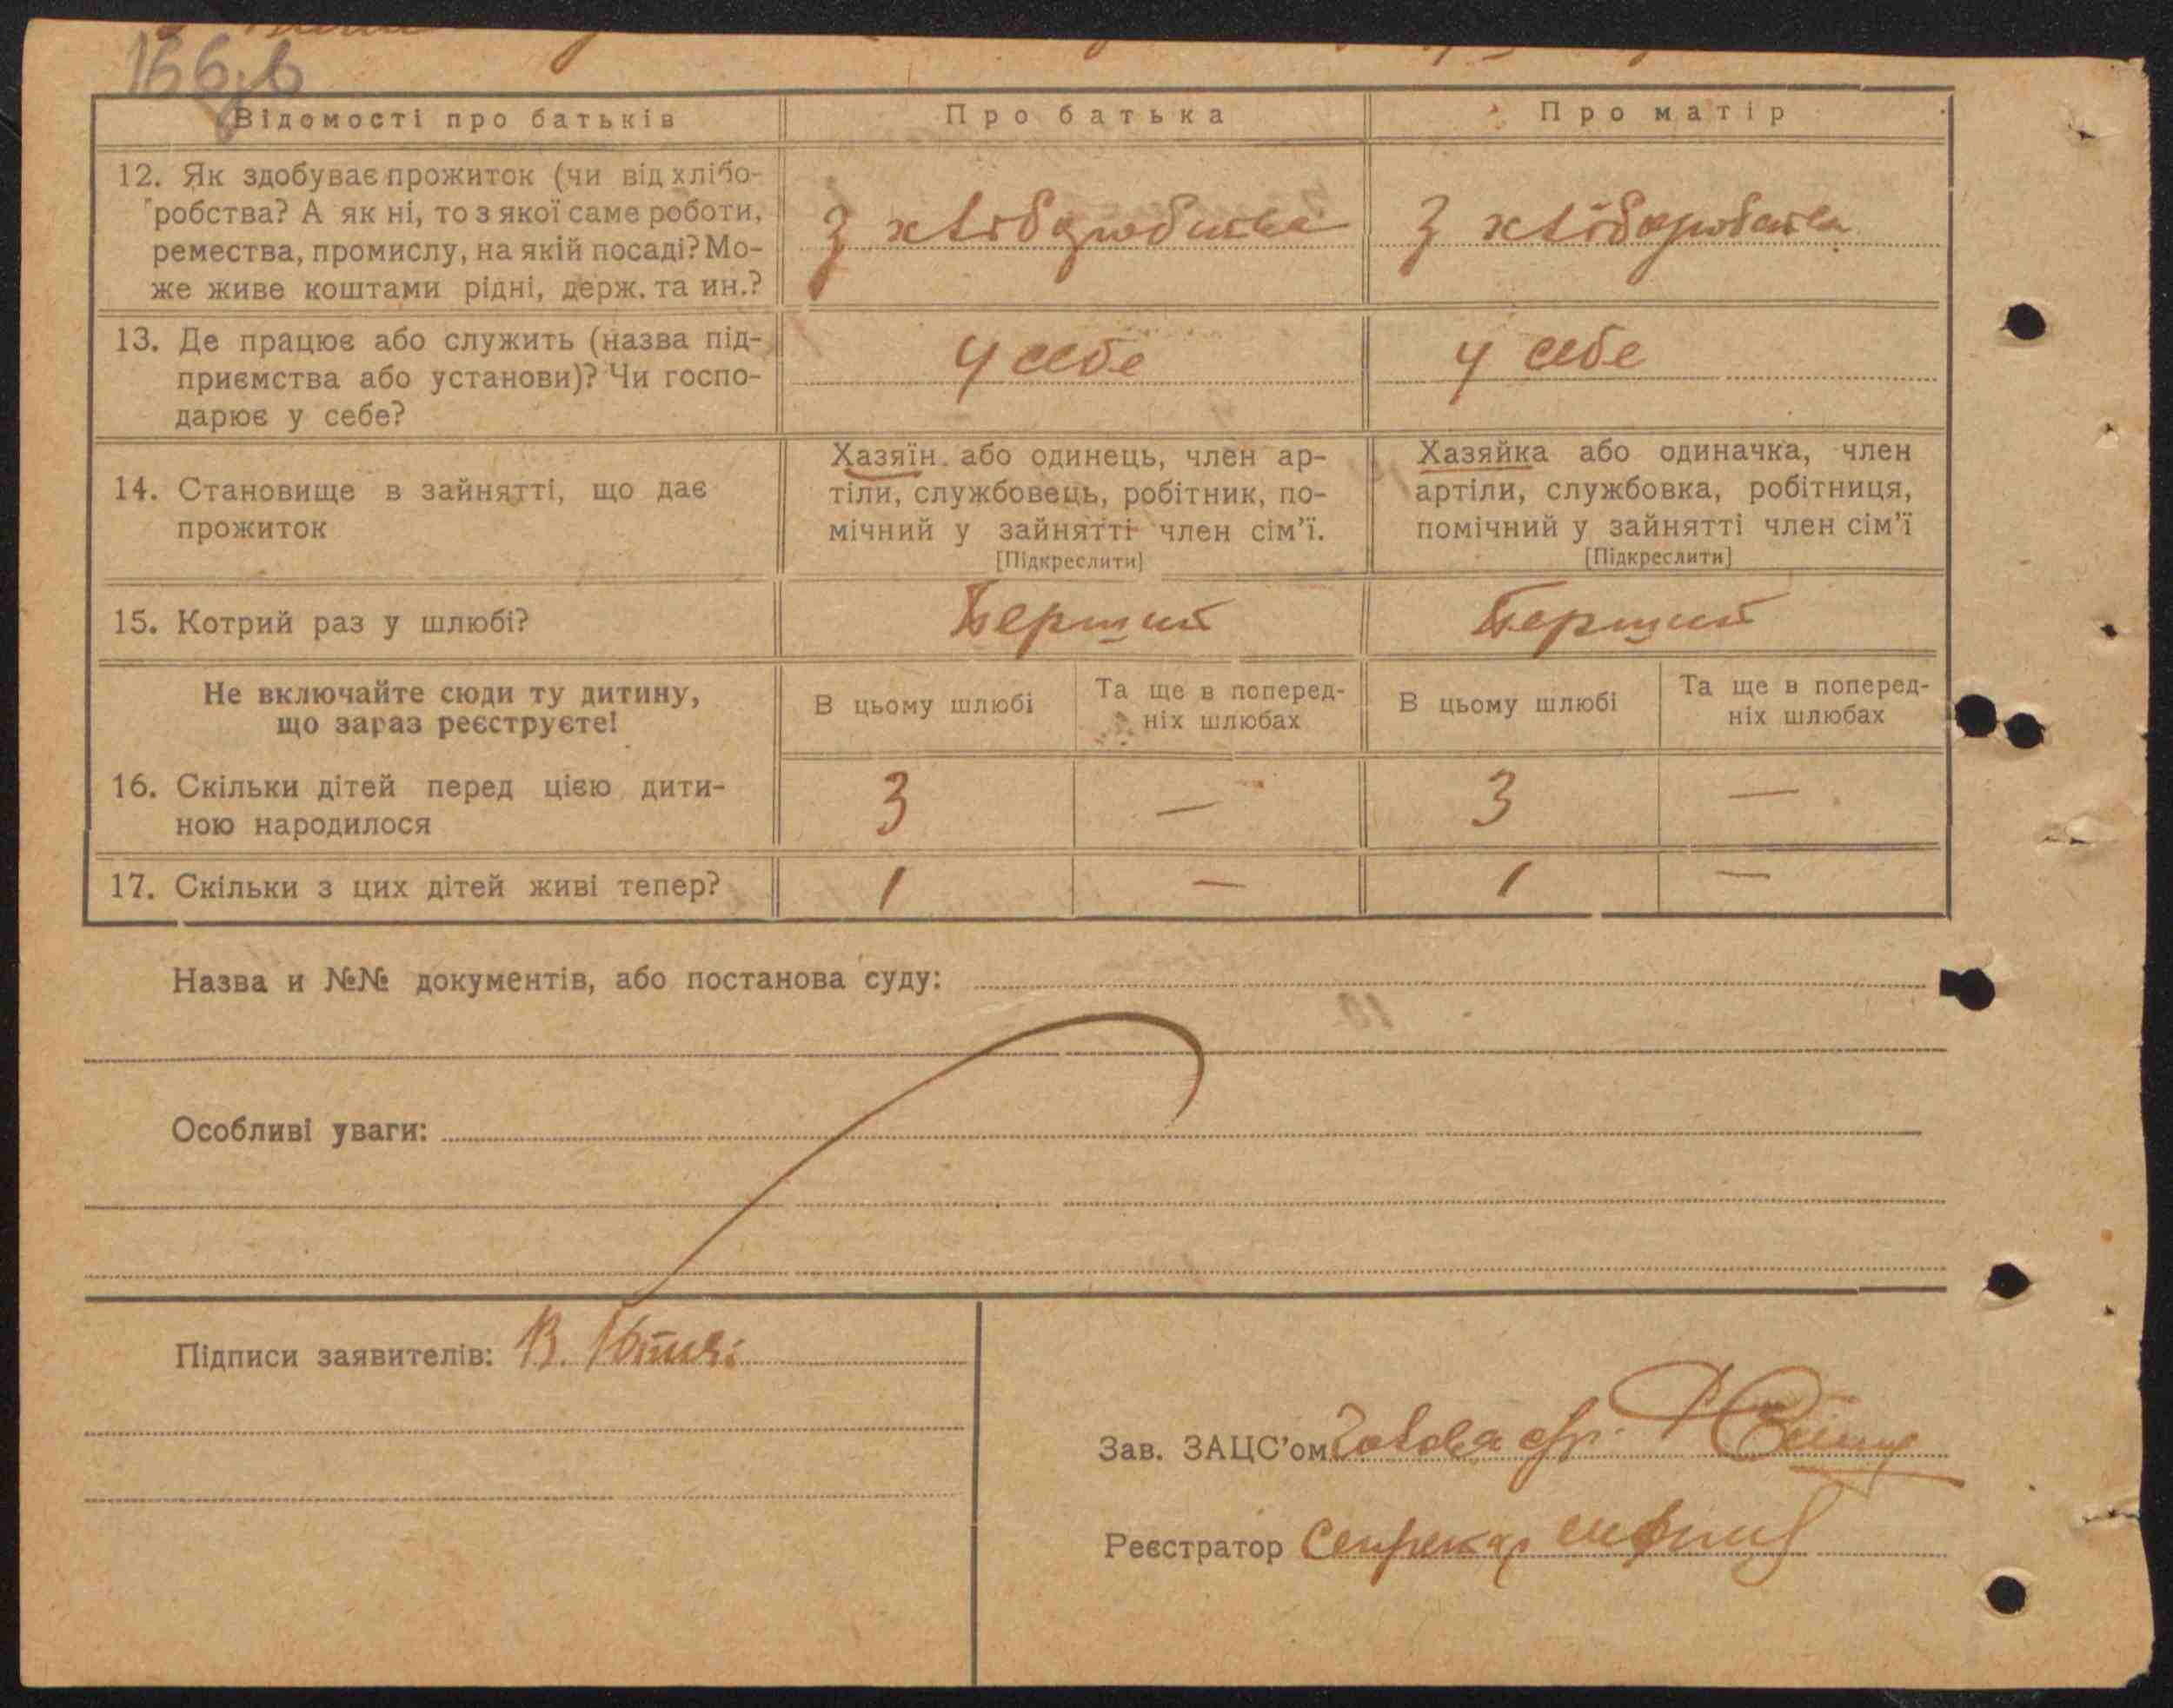 Відомості про батьків
Про батька
Про матір
12. Як здобуває прожиток (чи від хлібо-
робства? А як ні, то з якої саме роботи,
ремества, промислу, на якій посаді? Мо-
же живе коштами рідні, держ. та ин.?
З хліборобства
З хліборобства
13. Де працює або служить (назва під-
приємства або установи)? Чи госпо-
дарює у себе?
У себе
У себе
14. Становище в зайнятті, що дає
прожиток
Хазяїн або одинець, член ар-
тіли, службовець, робітник, по-
мічний у зайнятті член сім'ї.
[Підкреслити]
Хазяйка або одиначка, член
артіли, службовка, робітниця,
помічний у зайнятті член сім'ї
[Підкреслити]
15. Котрий раз у шлюбі?
Перший
Перший
Не включайте сюди ту дитину,
що зараз реєструєте!
В цьому шлюбі
Та ще в поперед-
ніх шлюбах
В цьому шлюбі
Та ще в поперед-
ніх шлюбах
16. Скільки дітей перед цією дити-
ною народилося
3 — 3 —
17. Скільки з цих дітей живі тепер?
1 — 1 —
Назва и №№ документів, або постанова суду:
Особливі уваги:
Підписи заявителів: В.
Зав. ЗАЦС'ом Голова с/р.
Реєстратор Секретар